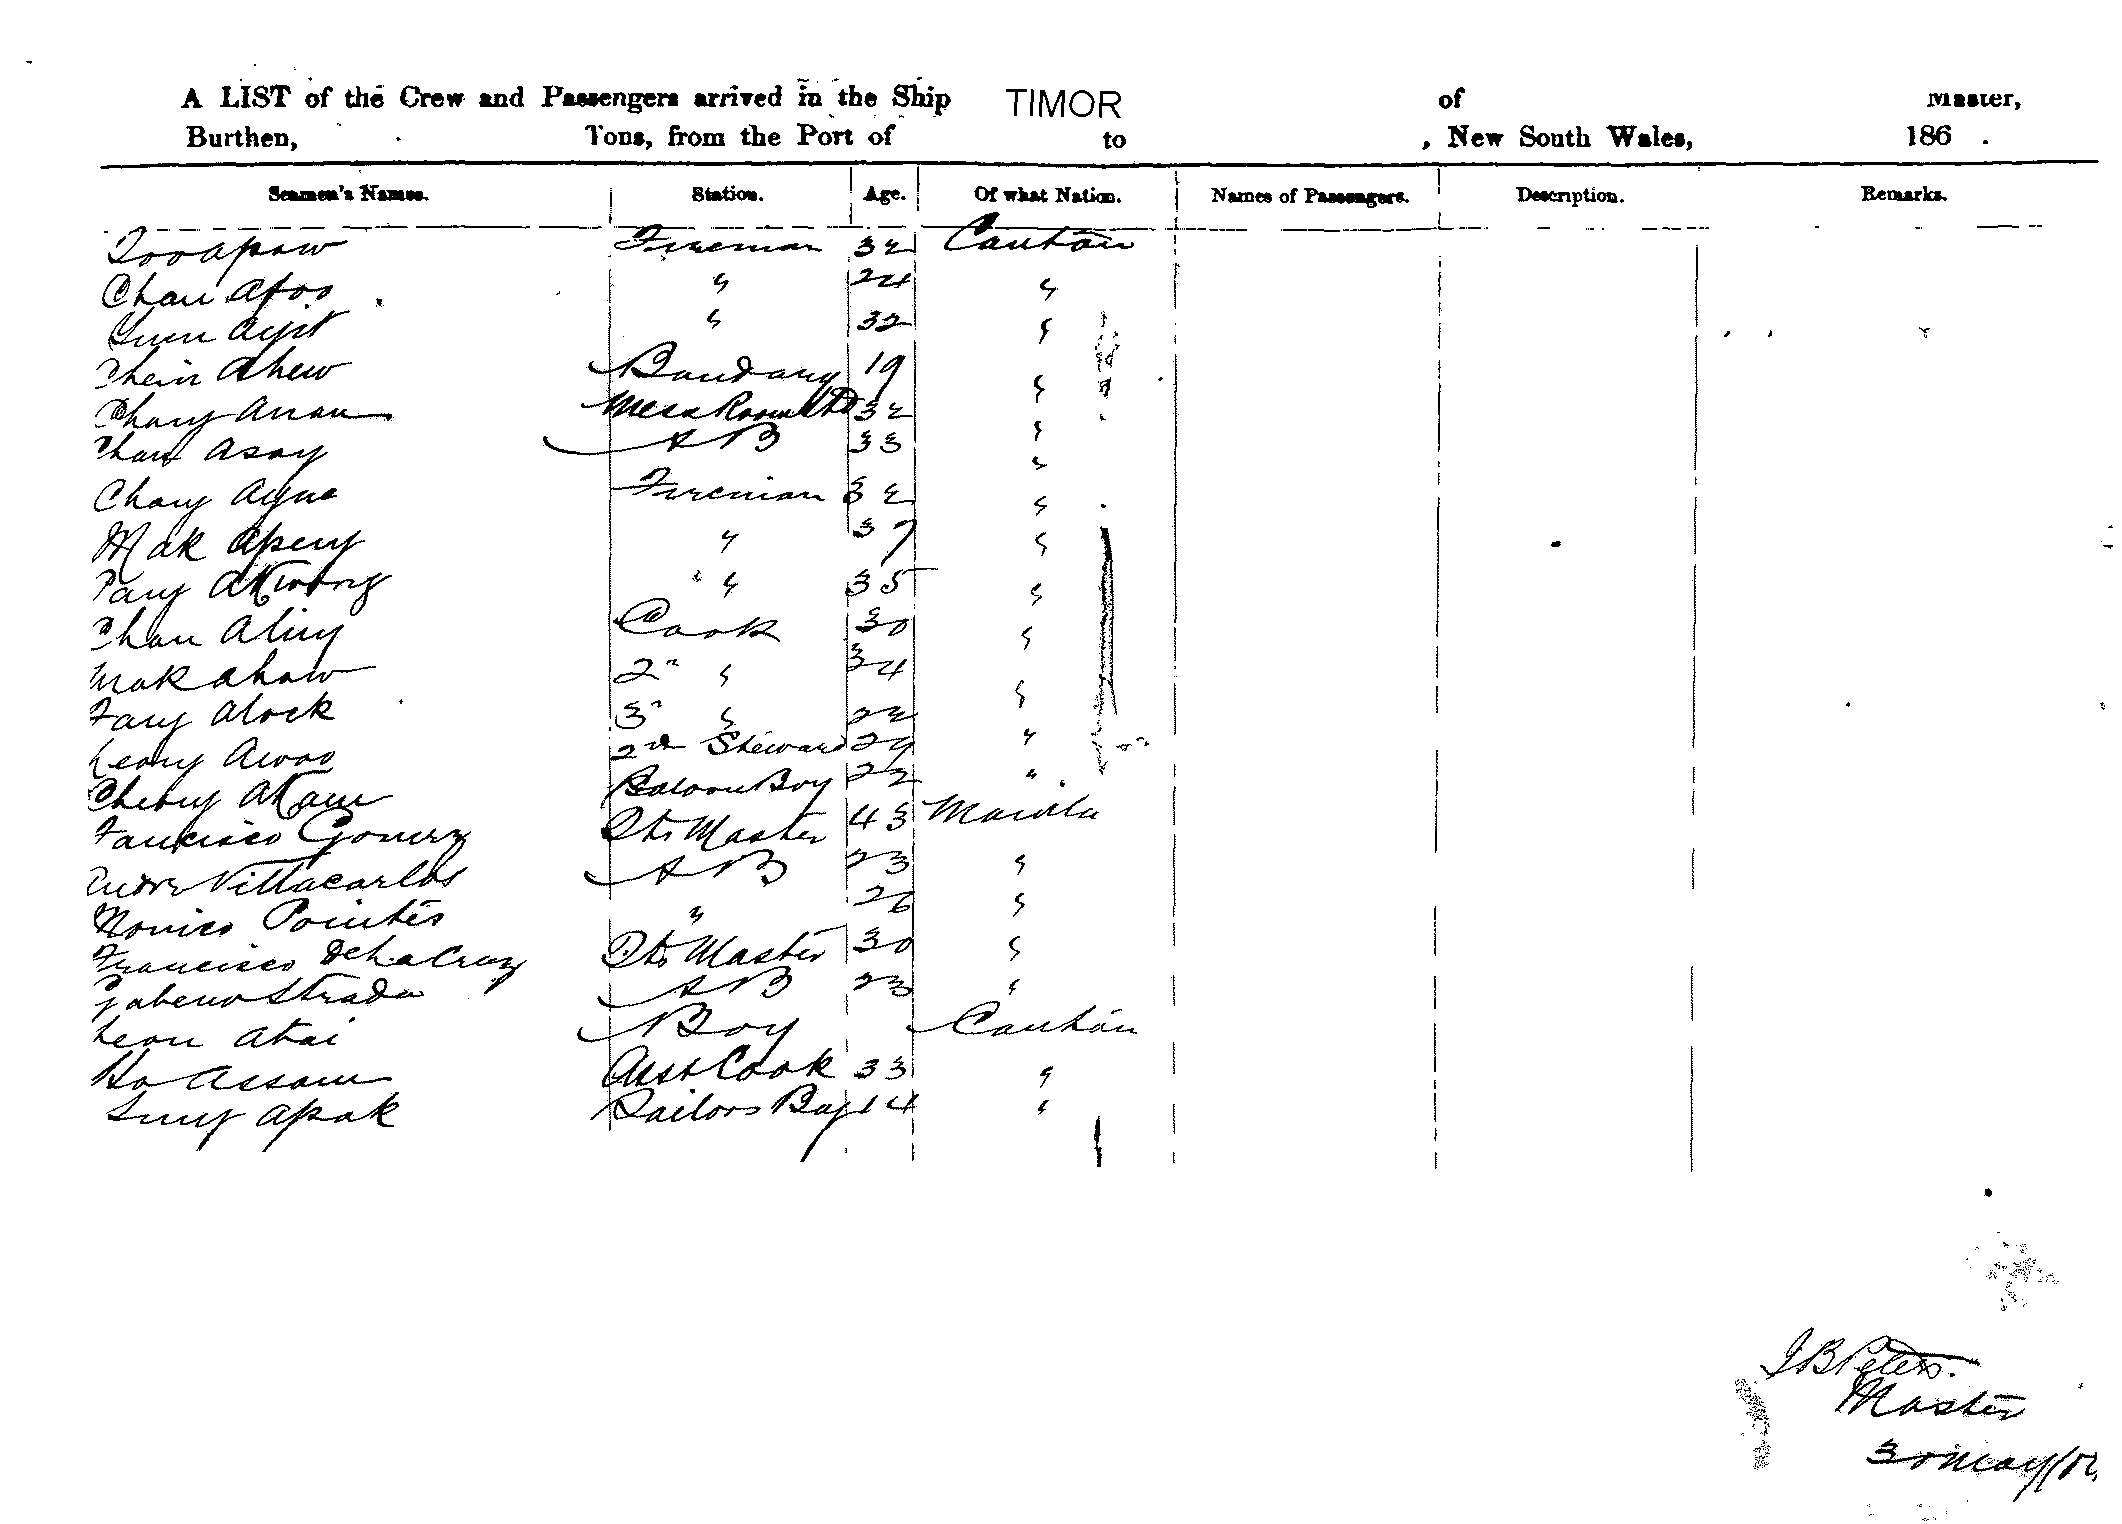 A LIST of the Crew and Passengers arrived in the Ship TIMOR of Master,
Burthen, Tons, from the Port of to , New South Wales, 186 .
Seamen's Names. Station. Age. Of what Nation. Names of Passengers. Description. Remarks.
Fireman 32 Canton
Chan Afoo " 24 "
Ayit " 32 "
Chein Ahew Bandary 19 "
Chang Mess Room 32 "
Chan Asay A B 33 "
Chang Fireman 32 "
Mak Apeng " 37 "
Pang Akwong " 35 "
Chan Cook 30 "
Mak Ahaw 2" " 34 "
Fang Alock 3" " 22 "
Leong Awoo 2nd Steward 29 "
Cheong Akam Saloon Boy 22 "
Fancisco Gomez Qtr Master 43 Manila
Villacarlos A B 23 "
" 26 "
Francisco DeLaCruz Qtr Master 30 "
Strada A B 23 "
Leon Atai Boy Canton
Ho Assam Asst Cook 33 "
Apak Sailors Boy 14 "
J B Peters.
Master
30 May